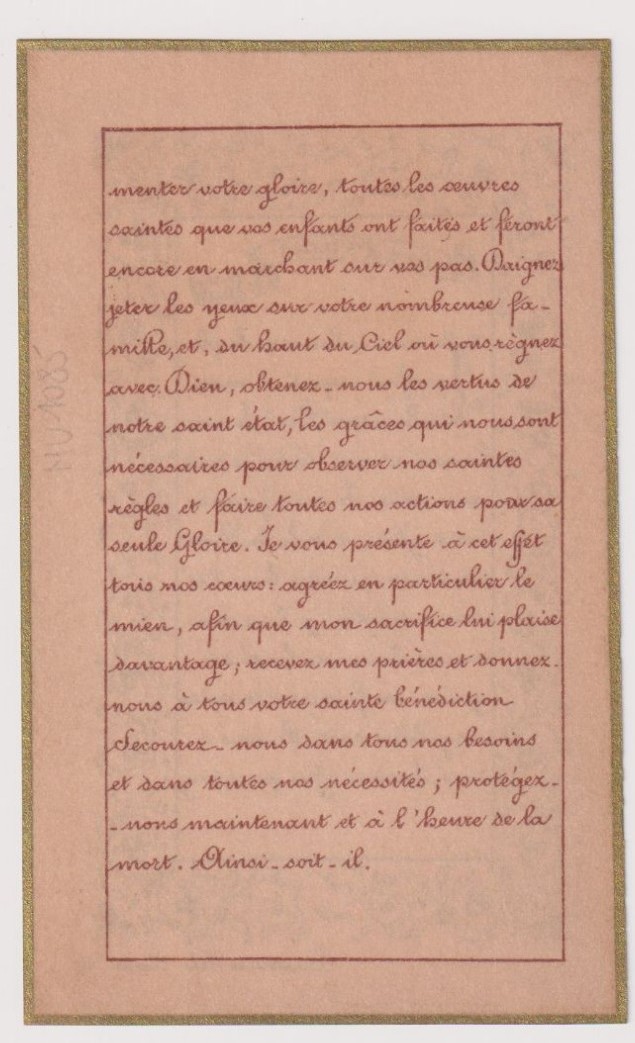 menter votre gloire, toutes les œuvres
saintes que vos enfants ont faites et feront
encore en marchant sur vos pas. Daignez
jeter les yeux sur votre nombreuse fa-
mille, et, du haut du Ciel où vous règnez
avec Dieu, obtenez-nous les vertus de
notre saint état, les grâces qui nous sont
nécessaires pour observer nos saintes
règles et faire toutes nos actions pour sa
seule Gloire. Je vous présente à cet effet
tous nos cœurs: agréez en particulier le
mien, afin que mon sacrifice lui plaise
davantage; recevez mes prières et donnez-
nous à tous votre sainte bénédiction
Secourez-nous dans tous nos besoins
et dans toutes nos nécessités; protégez-
-nous maintenant et à l'heure de la
mort. Ainsi-soit-il.